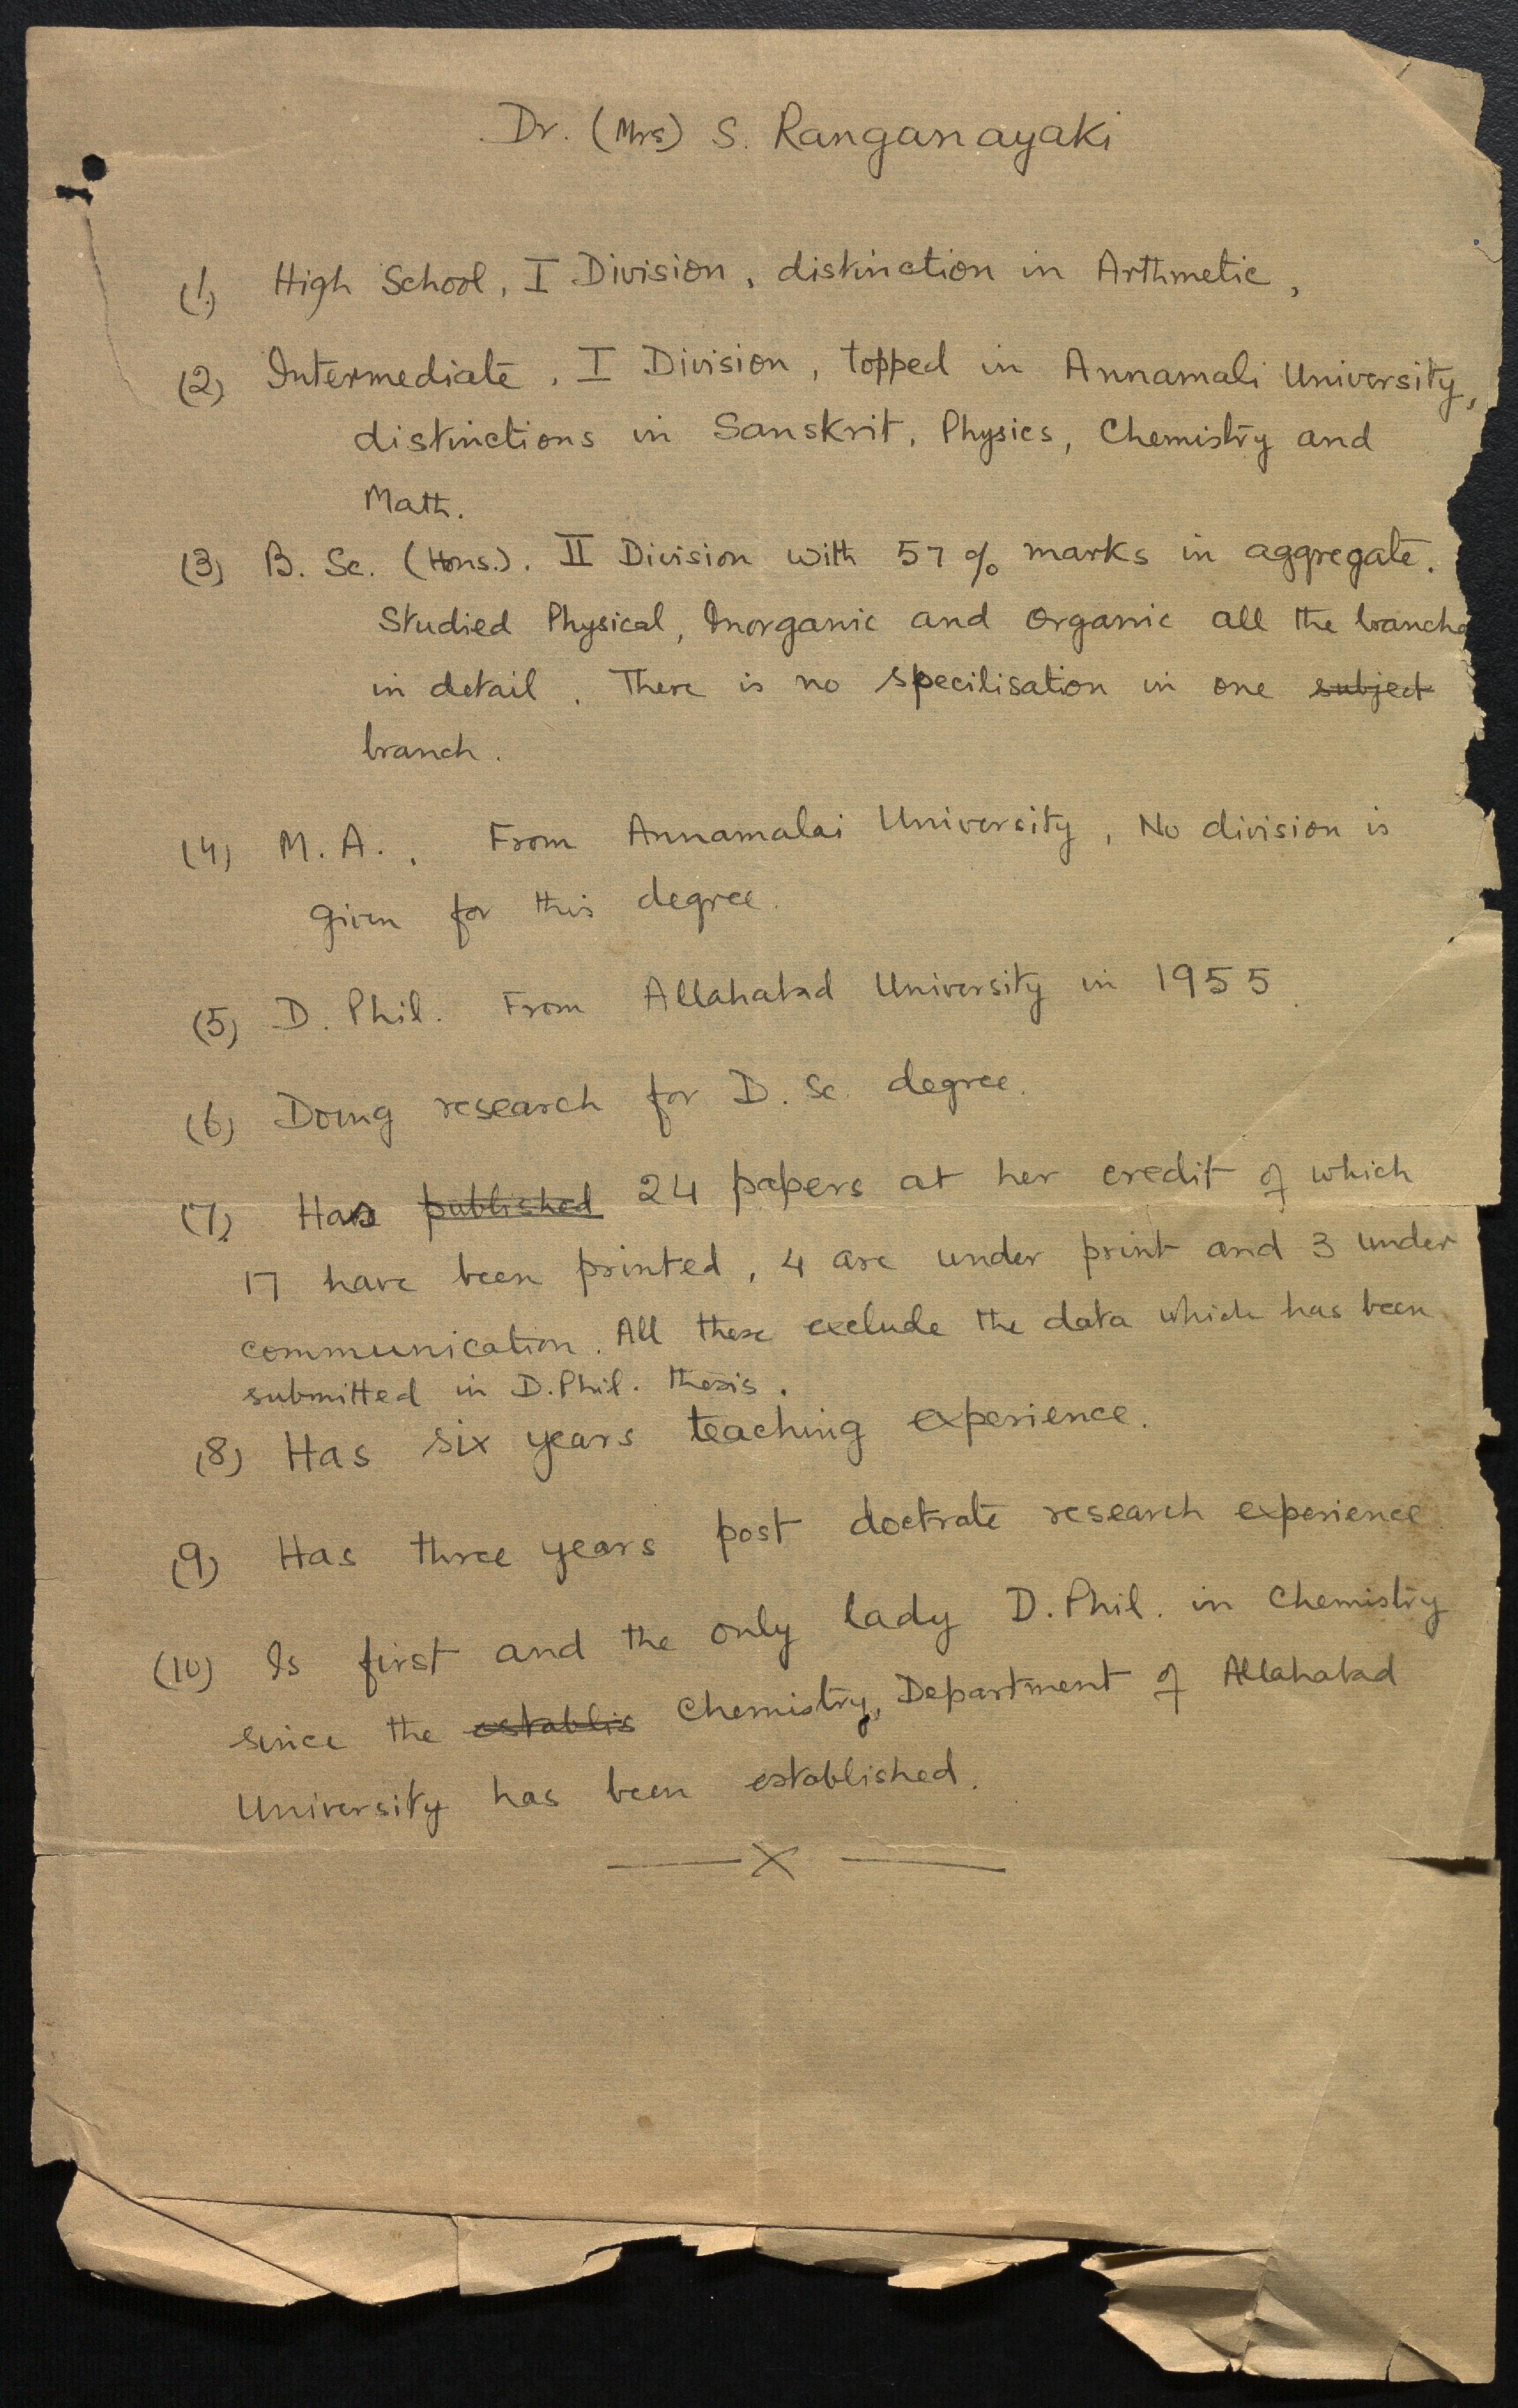 Dr. (Mrs) S. Ranganayaki
(1) High School, I Division, distinction in Arthmetic,
(2) Intermediate, I Division, topped in Annamali University,
distinctions in Sanskrit, Physics, Chemistry and
Math.
(3) B. Sc. (Hons.). II Division with 57% marks in aggregate.
Studied Physical, Inorganic and Organic all the branche
in detail. There is no specilisation in one subject
branch.
(4) M. A., From Annamalai University, No division is
given for this degree.
(5) D. Phil. From Allahabad University in 1955.
(6) Doing research for D. Sc. degree.
(7) Has published 24 papers at her credit of which
17 have been printed, 4 are under print and 3 under
communication. All these exclude the data which has been
submitted in D. Phil. thesis.
(8) Has six years teaching experience.
(9) Has three years post doctrate research experience
(10) Is first and the only lady D. Phil. in Chemistry
since the establis Chemistry, Department of Allahabad
University has been established.
—X—